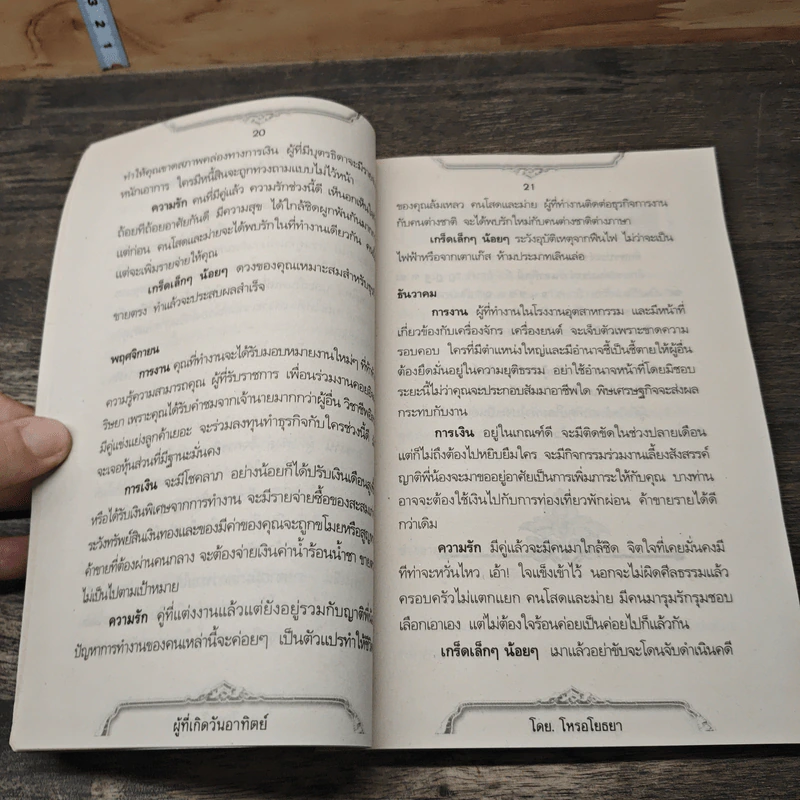 3
2
1
20
ทำให้คุณขาดสภาพคล่องทางการเงิน ผู้ที่มีบุตรธิดาจะมี
หนักเอาการ ใครมีหนี้สินจะถูกทวงถามแบบไม่ไว้หน้า
ความรัก คนที่มีคู่แล้ว ความรักช่วงนี้ดี เห็นอกเห็นใจ
ถ้อยทีถ้อยอาศัยกันดี มีความสุข ได้ใกล้ชิดผูกพันกัน
แต่ก่อน คนโสดและม่ายจะได้พบรักในที่ทำงานเดียวกัน
แต่จะเพิ่มรายจ่ายให้คุณ
เกร็ดเล็กๆ น้อยๆ ดวงของคุณเหมาะสมสำหรับ
ขายตรง ทำแล้วจะประสบผลสำเร็จ
พฤศจิกายน
การงาน คุณที่ทำงานจะได้รับมอบหมายงานใหม่ๆ ที่
ความรู้ความสามารถคุณ ผู้ที่รับราชการ เพื่อนร่วมงานคอย
ริษยา เพราะคุณได้รับคำชมจากเจ้านายมากกว่าผู้อื่น วิชาชีพ
มีคู่แข่งแย่งลูกค้าเยอะ จะร่วมลงทุนทำธุรกิจกับใครช่วงนี้ดี
จะเจอหุ้นส่วนที่มีฐานะมั่นคง
การเงิน จะมีโชคลาภ อย่างน้อยก็ได้ปรับเงินเดือน
หรือได้รับเงินพิเศษจากการทำงาน จะมีรายจ่ายซื้อของสะสม
ระวังทรัพย์สินเงินทองและของมีค่าของคุณจะถูกขโมยหรือ
ค้าขายที่ต้องผ่านคนกลาง จะต้องจ่ายเงินค่าน้ำร้อนน้ำชา
ไม่เป็นไปตามเป้าหมาย
ความรัก คู่ที่แต่งงานแล้วแต่ยังอยู่รวมกับญาติพี่น้อง
ปัญหาการทำงานของคนเหล่านี้จะค่อยๆ เป็นตัวแปรทำให้
ผู้ที่เกิดวันอาทิตย์
21
ของคุณล้มเหลว คนโสดและม่าย ผู้ที่ทำงานติดต่อธุรกิจการงาน
กับคนต่างชาติ จะได้พบรักใหม่กับคนต่างชาติต่างภาษา
เกร็ดเล็กๆ น้อยๆ ระวังอุบัติเหตุจากฟืนไฟ ไม่ว่าจะเป็น
ไฟฟ้าหรือจากเตาแก๊ส ห้ามประมาทเลินเล่อ
ธันวาคม
การงาน ผู้ที่ทำงานในโรงงานอุตสาหกรรม และมีหน้าที่
เกี่ยวข้องกับเครื่องจักร เครื่องยนต์ จะเจ็บตัวเพราะขาดความ
รอบคอบ ใครที่มีตำแหน่งใหญ่และมีอำนาจชี้เป็นชี้ตายให้ผู้อื่น
ต้องยึดมั่นอยู่ในความยุติธรรม อย่าใช้อำนาจหน้าที่โดยมิชอบ
ระยะนี้ไม่ว่าคุณจะประกอบสัมมาอาชีพใด พิษเศรษฐกิจจะส่งผล
กระทบกับงาน
การเงิน อยู่ในเกณฑ์ดี จะมีติดขัดในช่วงปลายเดือน
แต่ก็ไม่ถึงต้องไปหยิบยืมใคร จะมีกิจกรรมร่วมงานเลี้ยงสังสรรค์
ญาติพี่น้องจะมาขออยู่อาศัยเป็นการเพิ่มภาระให้กับคุณ บางท่าน
อาจจะต้องใช้เงินไปกับการท่องเที่ยวพักผ่อน ค้าขายรายได้ดี
กว่าเดิม
ความรัก มีคู่แล้วจะมีคนมาใกล้ชิด จิตใจที่เคยมั่นคงมี
ทีท่าจะหวั่นไหว เอ้า! ใจแข็งเข้าไว้ นอกจะไม่ผิดศีลธรรมแล้ว
ครอบครัวไม่แตกแยก คนโสดและม่าย มีคนมารุมรักรุมชอบ
เลือกเอาเอง แต่ไม่ต้องใจร้อนค่อยเป็นค่อยไปก็แล้วกัน
เกร็ดเล็กๆ น้อยๆ เมาแล้วอย่าขับจะโดนจับดำเนินคดี
โดย. โหรอโยธยา